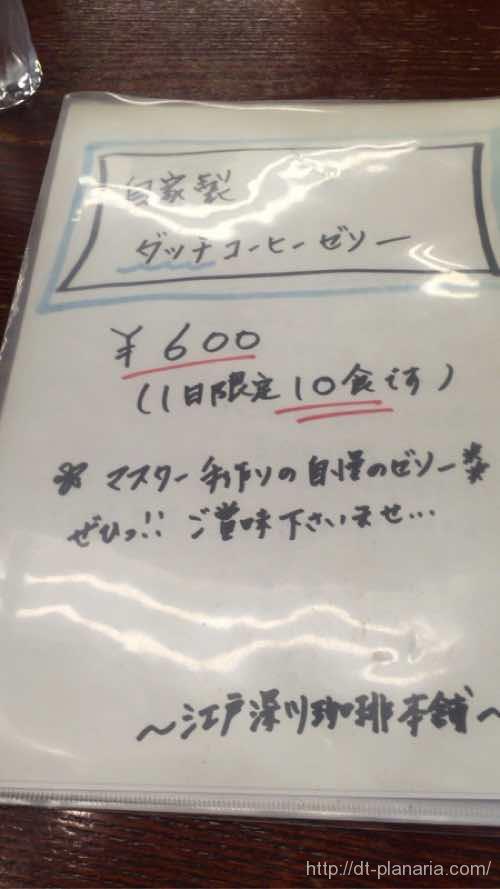 自家製
ダッチコーヒーゼリー
¥600
(1日限定10食です)
※ マスター手作りの自慢のゼリー※
ぜひっ!! ご賞味下さいませ…
〜江戸深川珈琲本舗〜
http://dt-planaria.com/